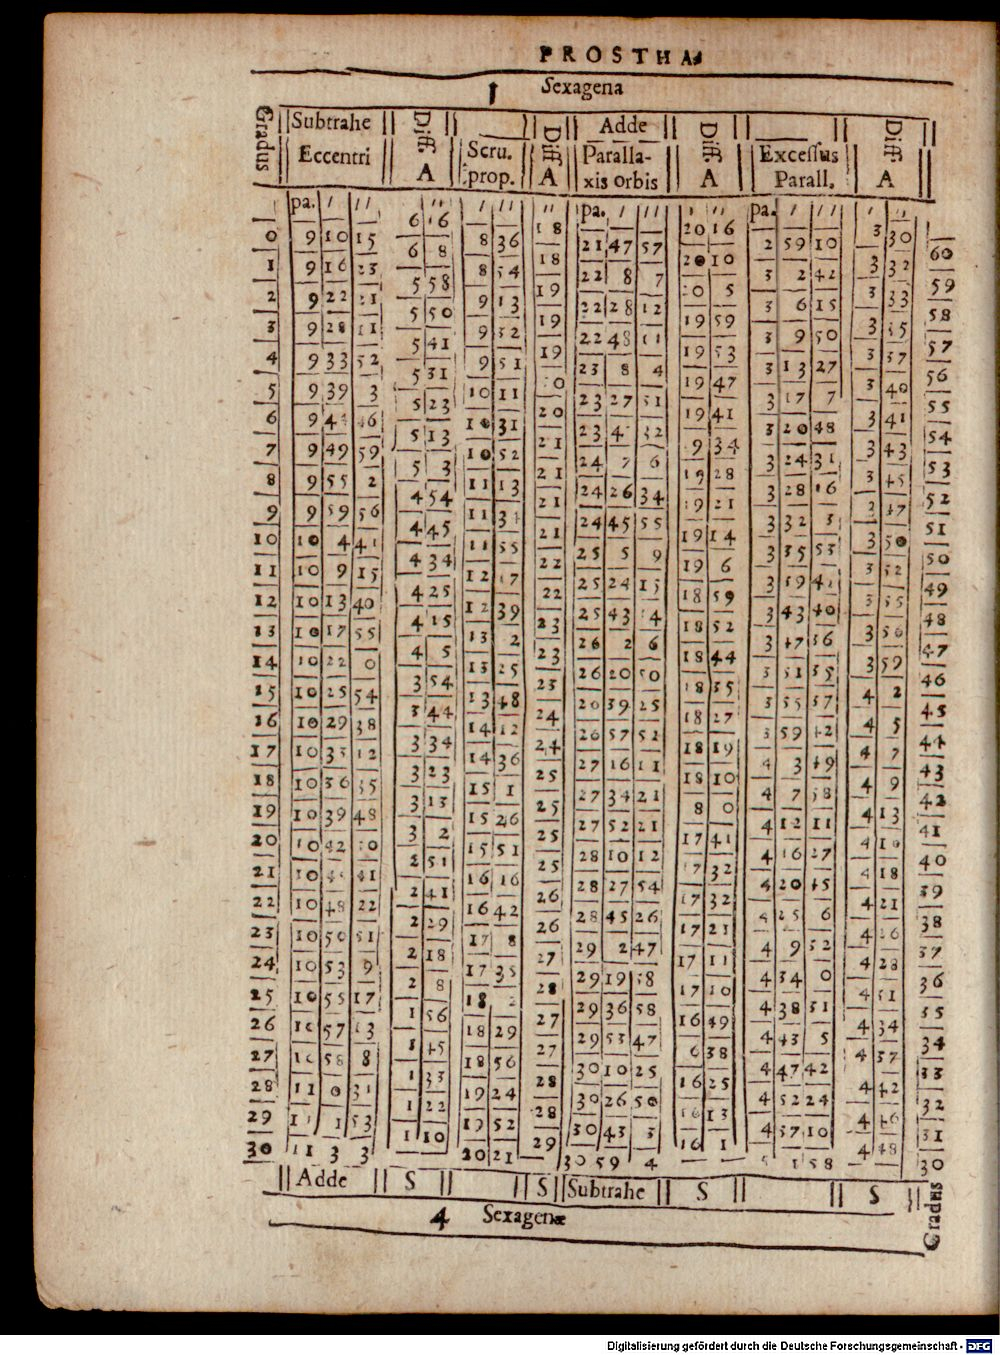 PROSTHA
1 Sexagena
Gradus Subtrahe Eccentri Diff. A Scru. prop. Diff. A Adde Paralla- xis orbis Diff. A Excessus Parall. Diff. A
pa. / // / // / // // pa. / // / // pa. / // / //
6 16 18 20 16 3 30
0 9 10 15 8 36 21 47 57 2 59 10 60
6 8 18 20 10 3 32
1 9 16 23 8 54 22 8 7 3 2 42 59
5 58 19 20 5 3 33
2 9 22 21 9 13 22 28 12 3 6 15 58
5 50 19 19 59 3 35
3 9 28 11 9 32 22 48 11 3 9 50 57
5 41 19 19 53 3 37
4 9 33 52 9 51 23 8 4 3 13 27 56
5 31 20 19 47 3 40
5 9 39 3 10 11 23 27 51 3 17 7 55
5 23 20 19 41 3 41
6 9 44 46 10 31 23 4 32 3 20 48 54
5 13 21 9 34 3 43
7 9 49 59 10 52 24 7 6 3 24 31 53
5 3 21 19 28 3 45
8 9 55 2 11 13 24 26 34 3 28 16 52
4 54 21 19 21 3 47
9 9 59 56 11 34 24 45 55 3 32 3 51
4 45 21 19 14 3 50
10 10 4 41 11 55 25 5 9 3 35 53 50
4 34 22 19 6 3 52
11 10 9 15 12 17 25 24 15 3 39 45 49
4 25 22 18 59 3 55
12 10 13 40 12 39 25 43 14 3 43 40 48
4 15 23 18 52 3 56
13 10 17 55 13 2 26 2 6 3 47 36 47
4 5 23 18 44 3 59
14 10 22 0 13 25 26 20 50 3 51 35 46
3 54 23 18 35 4 2
15 10 25 54 13 48 26 39 25 3 55 37 45
3 44 24 18 27 4 5
16 10 29 38 14 12 26 57 52 3 59 42 44
3 34 24 18 19 4 7
17 10 33 12 14 36 27 16 11 4 3 49 43
3 23 25 18 10 4 9
18 10 36 35 15 1 27 34 21 4 7 58 42
3 13 25 8 0 4 13
19 10 39 48 15 26 27 52 21 4 12 11 41
3 2 25 17 41 4 16
20 10 42 50 15 51 28 10 12 4 16 27 40
2 51 25 17 32 4 18
21 10 45 41 16 16 28 27 54 4 20 45 39
2 41 26 17 32 4 21
22 10 48 22 16 42 28 45 26 4 25 6 38
2 29 26 17 21 4 26
23 10 50 51 17 8 29 2 47 4 9 32 37
2 18 27 17 11 4 28
24 10 53 9 17 35 29 19 58 4 34 0 36
2 8 28 17 10 4 31
25 10 55 17 18 2 29 36 58 4 38 31 35
1 56 27 16 49 4 34
26 10 57 13 18 29 29 53 47 4 43 5 34
1 45 27 6 38 4 37
27 10 58 8 18 56 30 10 25 4 47 42 33
1 33 28 16 25 4 42
28 11 0 31 19 24 30 26 50 4 52 24 32
1 22 28 16 13 4 46
29 11 1 53 19 52 30 43 3 4 57 10 31
1 10 29 16 1 4 48
30 11 3 3 20 21 30 59 4 5 1 58 30
Adde S S Subtrahe S S Gradus
4 Sexagenæ
Digitalisierung gefördert durch die Deutsche Forschungsgemeinschaft - DFG